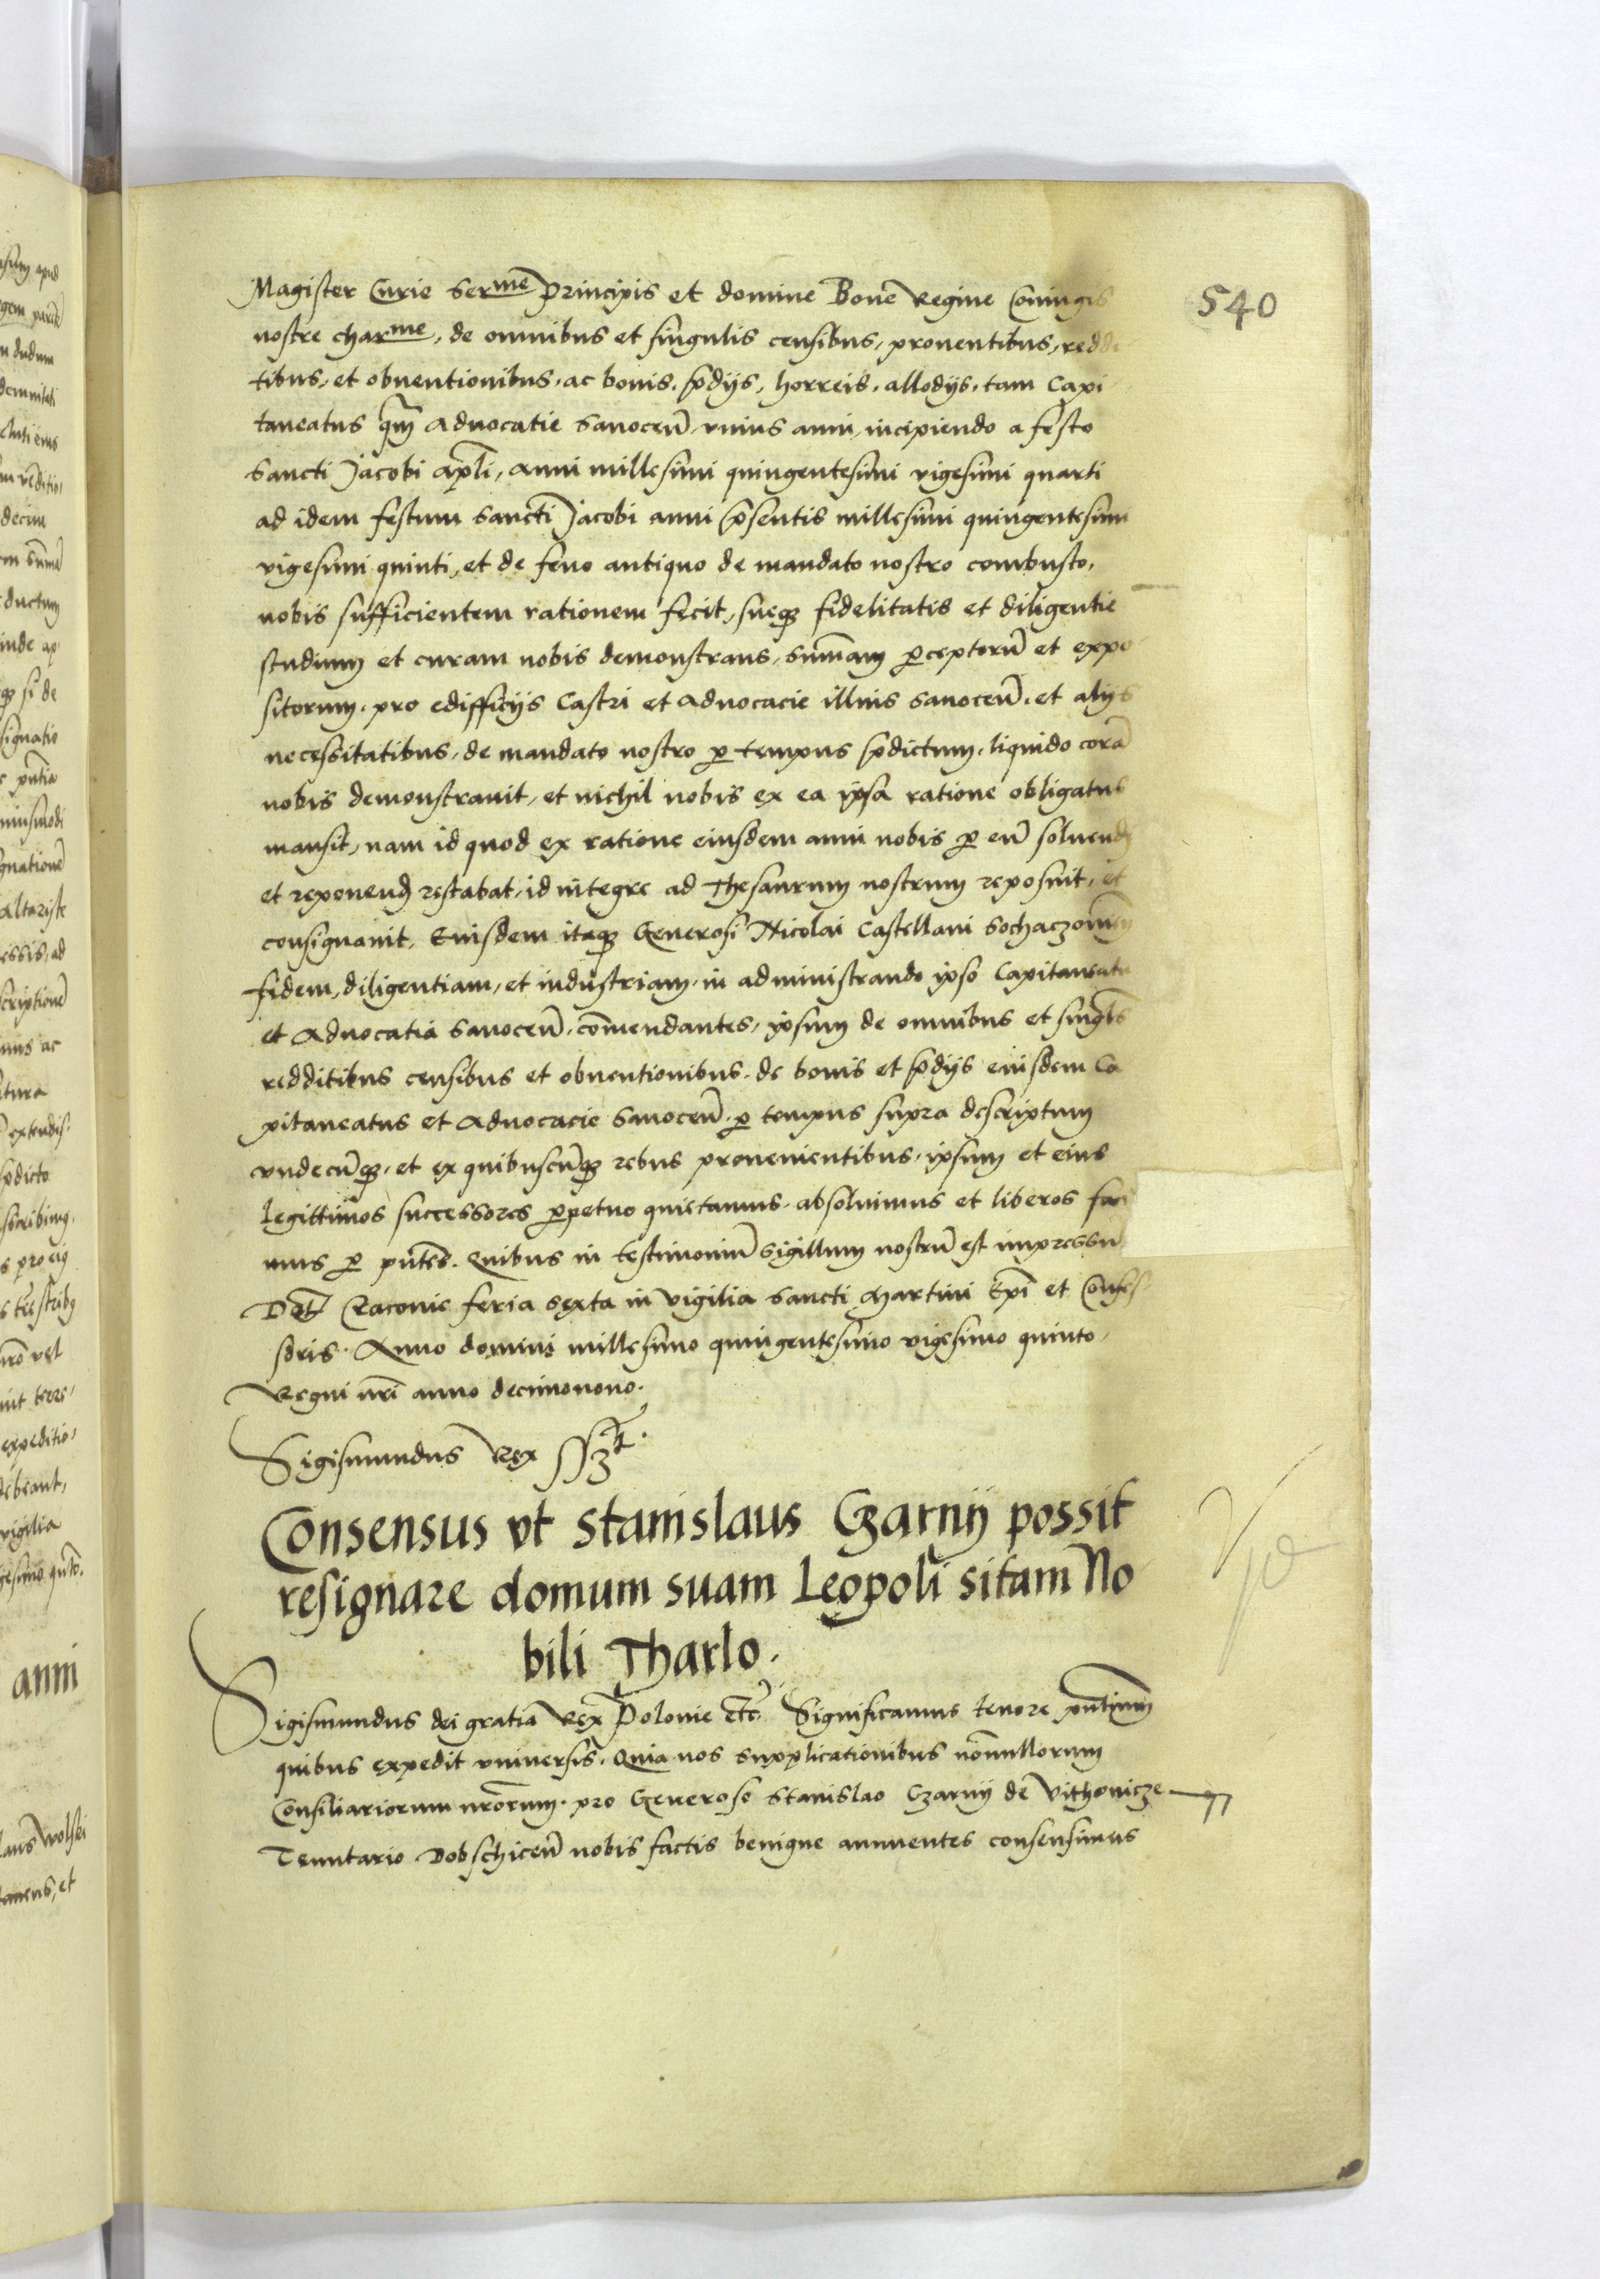 540
Magister Curie Serme Principis et domine Bone Regine Coniugis
nostre charme, de omnibus et singulis censibus, prouentibus, reddi
tibus, et obuentionibus, ac bonis, p̄dijs, horreis, allodijs, tam Capi
taneatus qm̄ Aduocatie Sanoceñ, vnius anni, incipiendo a festo
Sancti Jacobi Apl̄i, Anni millesimi quingentesimi vigesimi quarti
ad idem festum Sancti Jacobi anni p̄sentis millesimi quingentesimi
vigesimi quinti, et de feno antiquo de mandato nostro combusto,
nobis sufficientem rationem fecit, sueqꝫ fidelitatis et diligentie
studium et curam nobis demonstrans, Sum̄am ꝑceptorū et expo
sitorum, pro edifficijs Castri et Aduocacie illius Sanoceñ, et alijs
necessitatibus, de mandato nostro ꝑ tempus p̄dictum, liquido corā
nobis demonstrauit, et nichil nobis ex ea ipsa ratione obligatus
mansit, nam id quod ex ratione eiusdem anni nobis ꝑ eū soluend
et reponend restabat, id integre ad Thesaurum nostrum reposuit, et
consignauit, Eiusdem itaqꝫ Generosi Nicolai Castellani Sochaczouieñ
fidem, diligentiam, et industriam, in administrando ipso Capitaneatu
et Aduocatia Sanoceñ, com̄endantes, ipsum de omnibus et singlis
redditibus censibus et obuentionibus, de bonis et p̄dijs eiusdem Ca
pitaneatus et Aduocacie Sanoceñ, ꝑ tempus supra descriptum
vndecūqꝫ, et ex quibuscūqꝫ rebus prouenientibus, ipsum et eius
legittimos successores ꝑpetuo quietamus, absoluimus et liberos faci
mus ꝑ pn̄tes. Quibus in testimoniū sigillum nostrū est impressū
Dat Cracouie feria sexta in vigilia Sancti Martini Epī et Confes
soris. Anno domini millesimo quingentesimo vigesimo quinto,
Regni nr̄i anno decimonono.
Sigismundus Rex
Consensus vt Stanislaus Czarnÿ possit
resignare domum suam Leopoli sitam No
bili Tharlo.
Sigismundus dei gratia Rex Polonie etc. Significamus tenore pn̄tium
quibus expedit vniuersis. Quia nos supplicationibus nōnullorum
Consiliariorum nr̄orum, pro Generoso Stanislao Czarnÿ de Vithowicze
Tenutario Dobschiceñ nobis factis benigne annuentes consensimus